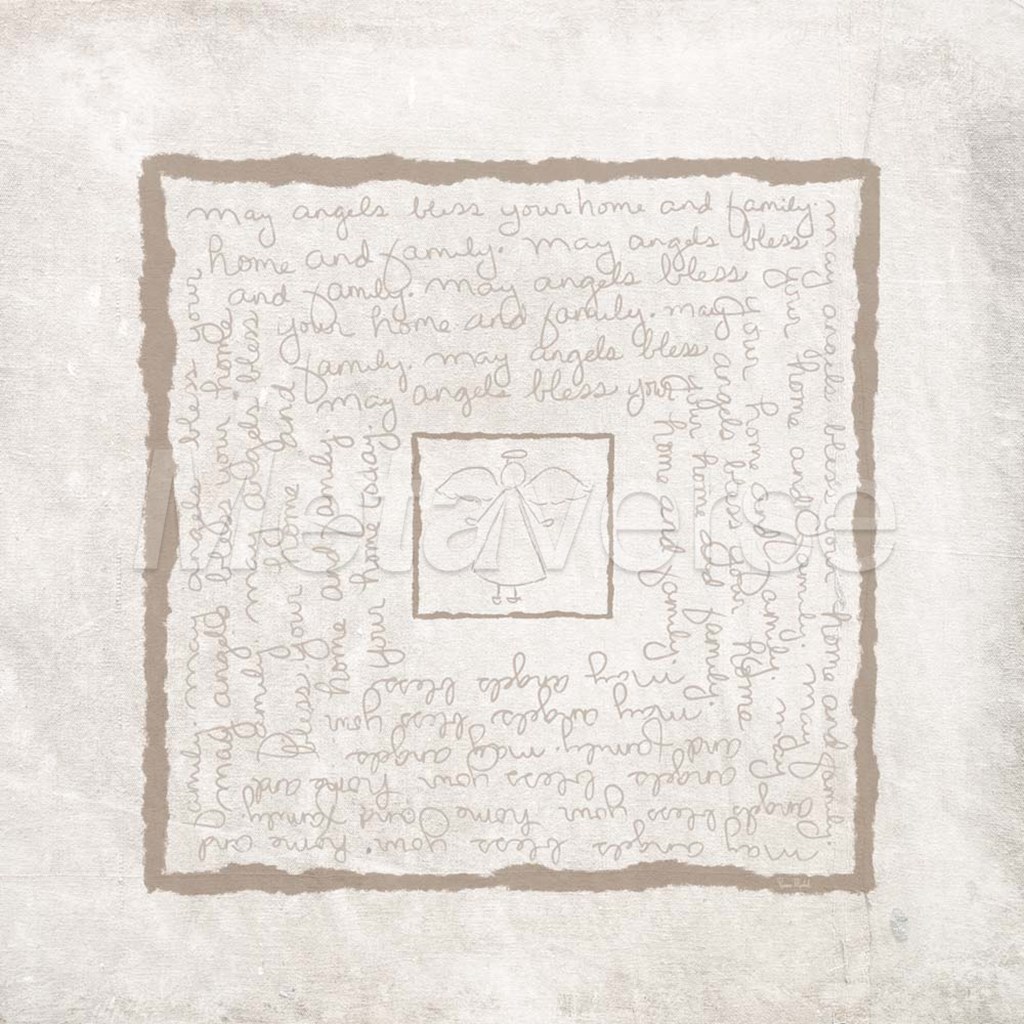 may angels bless your home and family.
home and family. may angels bless
and family. may angels bless
your home and family. may
family. may angels bless
may angels bless your
may angels bless your home and family.
your home and family. may angels
your home and family. may
angels bless your home
your home and family.
home and family.
may angels bless your home and
angels bless your home and family.
angels bless your home and
and family. may angels
may angels bless your
may angels bless
family. may angels bless your
may angels bless your home
family. may angels bless
bless your home and
home and family.
your home today.
Metaverse